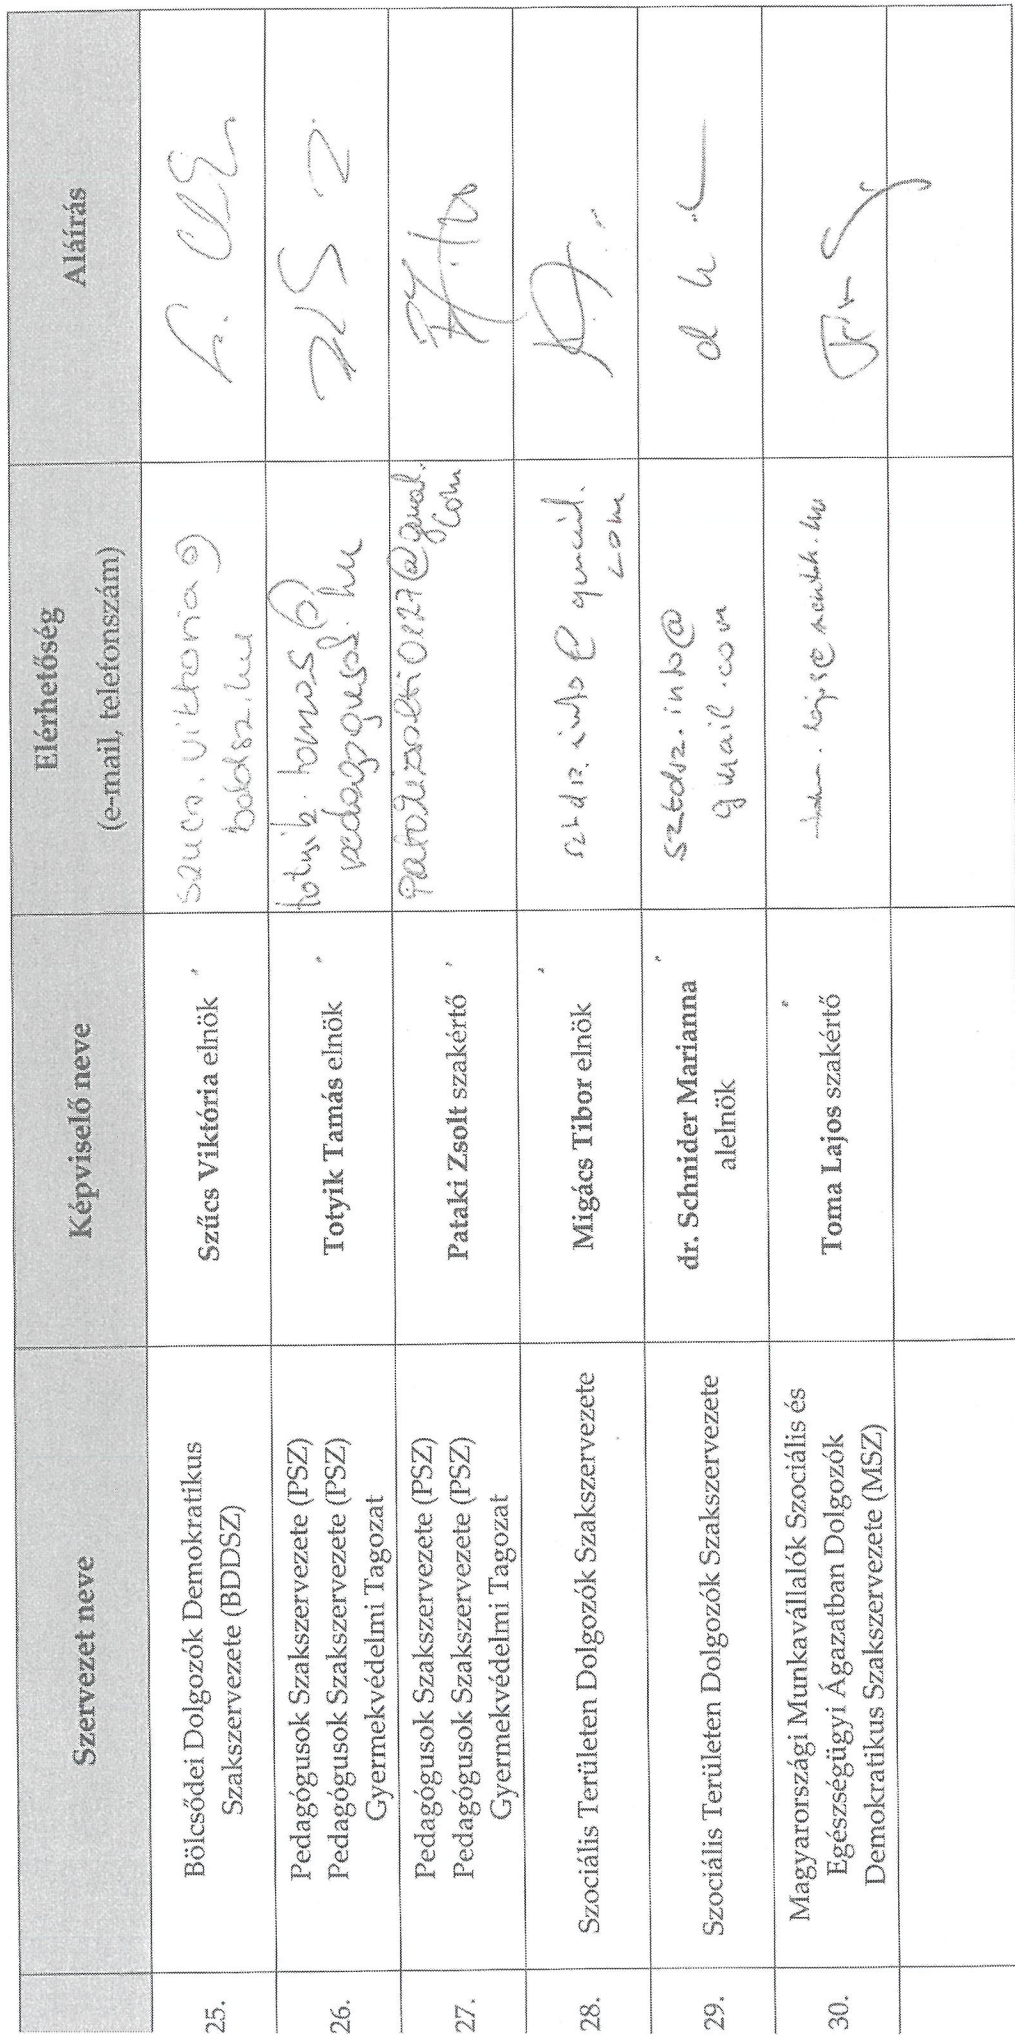 Szervezet neve
Képviselő neve
Elérhetőség
(e-mail, telefonszám)
Aláírás
25.
Bölcsődei Dolgozók Demokratikus
Szakszervezete (BDDSZ)
Szűcs Viktória elnök
szucs.viktoria@
bddsz.hu
26.
Pedagógusok Szakszervezete (PSZ)
Pedagógusok Szakszervezete (PSZ)
Gyermekvédelmi Tagozat
Totyik Tamás elnök
totyik.tamas@
pedagogusok.hu
27.
Pedagógusok Szakszervezete (PSZ)
Pedagógusok Szakszervezete (PSZ)
Gyermekvédelmi Tagozat
Pataki Zsolt szakértő
patakizsolti0227@gmail.
com
28.
Szociális Területen Dolgozók Szakszervezete
Migács Tibor elnök
sztdsz.info@gmail.
com
29.
Szociális Területen Dolgozók Szakszervezete
dr. Schnider Marianna
alelnök
sztdsz.info@
gmail.com
30.
Magyarországi Munkavállalók Szociális és
Egészségügyi Ágazatban Dolgozók
Demokratikus Szakszervezete (MSZ)
Toma Lajos szakértő